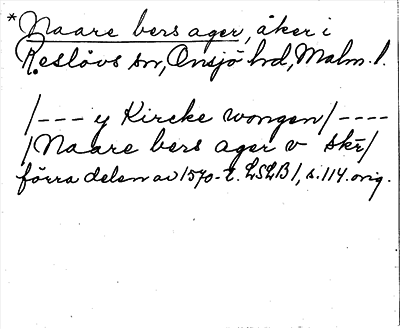 *Naare bers ager, åker i
Reslövs sn, Onsjö hd, Malm. l.
/--- y Kircke wongen/----
/Naare bers ager v skr/
förra delen av 1570-t. LSLB 1, s. 114. orig.